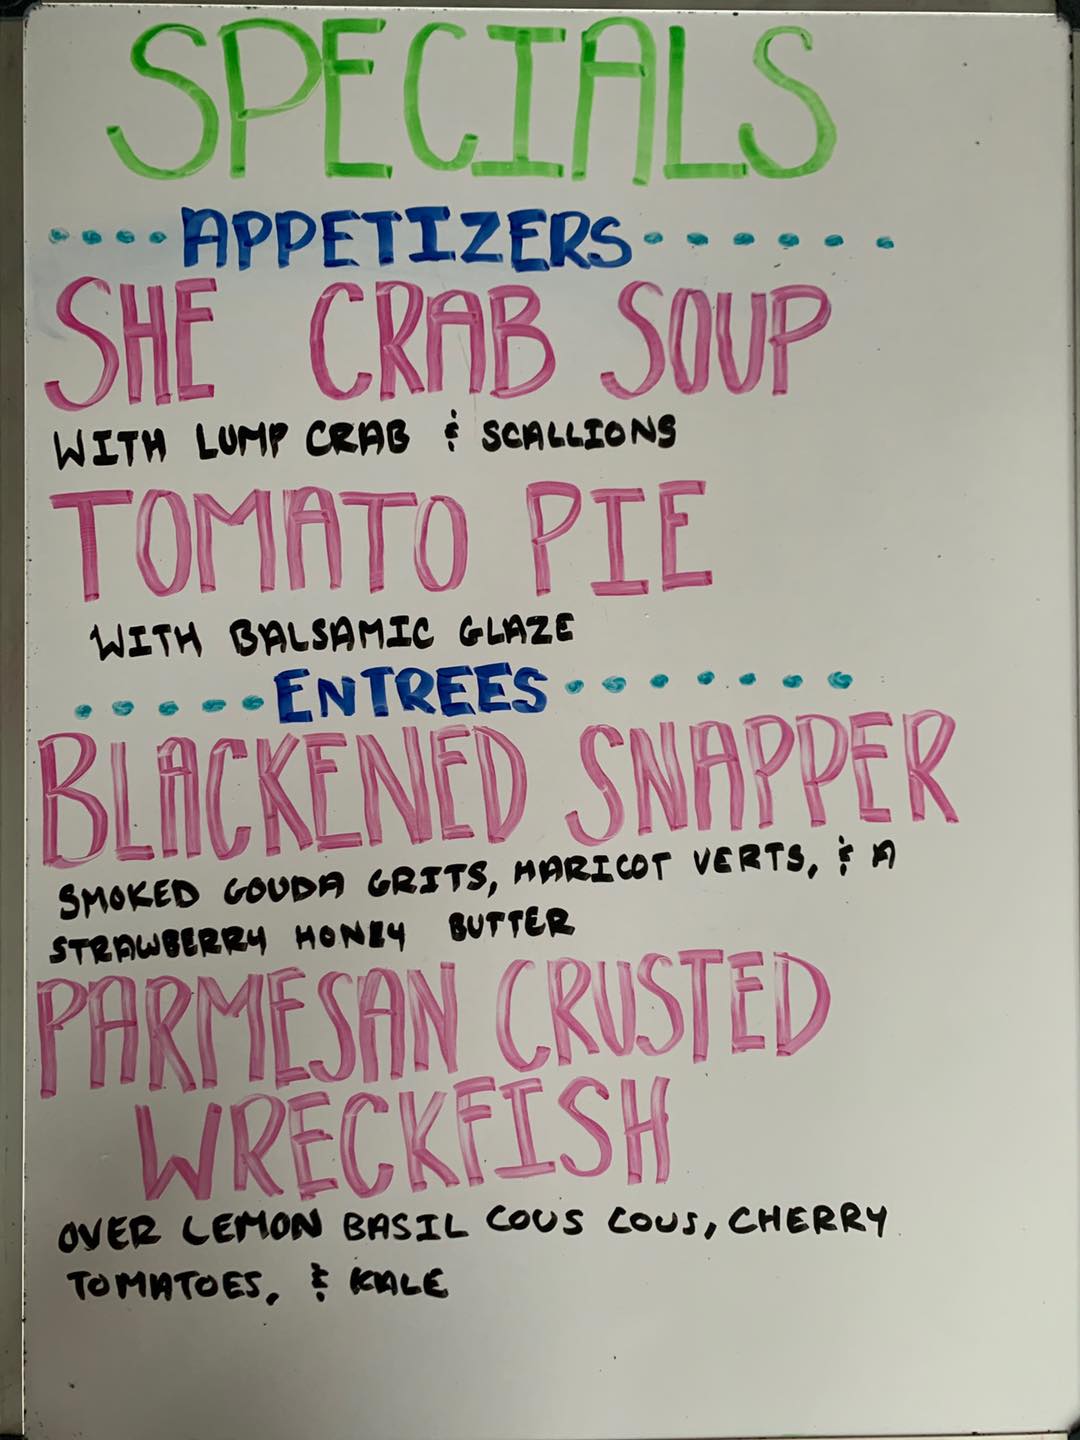 SPECIALS
APPETIZERS
SHE CRAB SOUP
WITH LUMP CRAB & SCALLIONS
TOMATO PIE
WITH BALSAMIC GLAZE
ENTREES
BLACKENED SNAPPER
SMOKED GOUDA GRITS, HARICOT VERTS, & A
STRAWBERRY HONEY BUTTER
PARMESAN CRUSTED
WRECKFISH
OVER LEMON BASIL COUS COUS, CHERRY
TOMATOES, & KALE